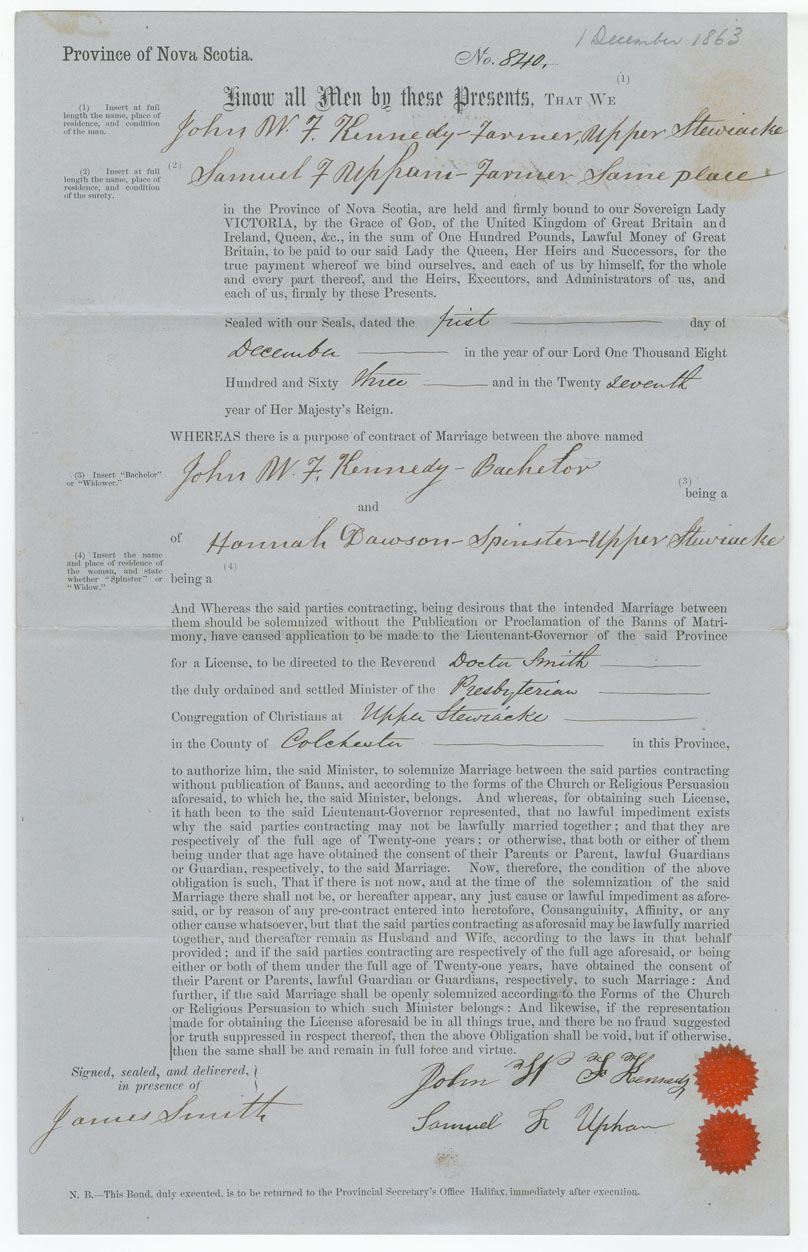 1 December 1863
Province of Nova Scotia.
No. 840.
(1)
Know all Men by these Presents, THAT WE
(1) Insert at full
length the name, place of
residence, and condition
of the man.
John W. F. Kennedy - Farmer, Upper Stewiacke
(2) Insert at full
length the name, place of
residence, and condition
of the surety.
(2) Samuel F Upham - Farmer Same place
in the Province of Nova Scotia, are held and firmly bound to our Sovereign Lady
VICTORIA, by the Grace of GOD, of the United Kingdom of Great Britain and
Ireland, Queen, &c., in the sum of One Hundred Pounds, Lawful Money of Great
Britain, to be paid to our said Lady the Queen, Her Heirs and Successors, for the
true payment whereof we bind ourselves, and each of us by himself, for the whole
and every part thereof, and the Heirs, Executors, and Administrators of us, and
each of us, firmly by these Presents.
Sealed with our Seals, dated the first day of
December in the year of our Lord One Thousand Eight
Hundred and Sixty three and in the Twenty seventh
year of Her Majesty's Reign.
WHEREAS there is a purpose of contract of Marriage between the above named
(3) Insert "Bachelor"
or "Widower."
John W. F. Kennedy - Bachelor
(3)
being a
and
of Hannah Dawson - Spinster - Upper Stewiacke
(4) Insert the name
and place of residence of
the woman, and state
whether "Spinster" or
"Widow."
(4)
being a
And Whereas the said parties contracting, being desirous that the intended Marriage between
them should be solemnized without the Publication or Proclamation of the Banns of Matri-
mony, have caused application to be made to the Lieutenant-Governor of the said Province
for a License, to be directed to the Reverend Doctor Smith
the duly ordained and settled Minister of the Presbyterian
Congregation of Christians at Upper Stewiacke
in the County of Colchester in this Province,
to authorize him, the said Minister, to solemnize Marriage between the said parties contracting
without publication of Banns, and according to the forms of the Church or Religious Persuasion
aforesaid, to which he, the said Minister, belongs. And whereas, for obtaining such License,
it hath been to the said Lieutenant-Governor represented, that no lawful impediment exists
why the said parties contracting may not be lawfully married together; and that they are
respectively of the full age of Twenty-one years; or otherwise, that both or either of them
being under that age have obtained the consent of their Parents or Parent, lawful Guardians
or Guardian, respectively, to the said Marriage. Now, therefore, the condition of the above
obligation is such, That if there is not now, and at the time of the solemnization of the said
Marriage there shall not be, or hereafter appear, any just cause or lawful impediment as afore-
said, or by reason of any pre-contract entered into heretofore, Consanguinity, Affinity, or any
other cause whatsoever, but that the said parties contracting as aforesaid may be lawfully married
together, and thereafter remain as Husband and Wife, according to the laws in that behalf
provided; and if the said parties contracting are respectively of the full age aforesaid, or being
either or both of them under the full age of Twenty-one years, have obtained the consent of
their Parent or Parents, lawful Guardian or Guardians, respectively, to such Marriage: And
further, if the said Marriage shall be openly solemnized according to the Forms of the Church
or Religious Persuasion to which such Minister belongs: And likewise, if the representation
made for obtaining the License aforesaid be in all things true, and there be no fraud suggested
or truth suppressed in respect thereof, then the above Obligation shall be void, but if otherwise,
then the same shall be and remain in full force and virtue.
Signed, sealed, and delivered,
in presence of
John W F Kennedy
James Smith
Samuel F Upham
N. B.—This Bond, duly executed, is to be returned to the Provincial Secretary's Office Halifax, immediately after execution.